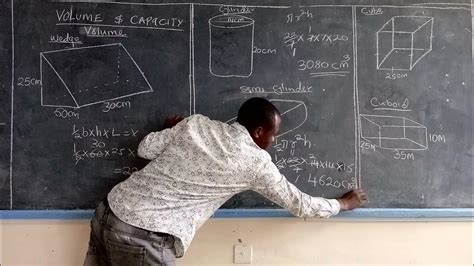 VOLUME & CAPACITY
Volume
Wedge
25cm
50cm
30cm
½ b x h x L =
30
Cylinder
14cm
20cm
πr²h
x 7 x 7 x 20
3080cm³
Semi Cylinder
½πr²h
4620cm³
Cube
25cm
Cuboid
10m
25m
35m